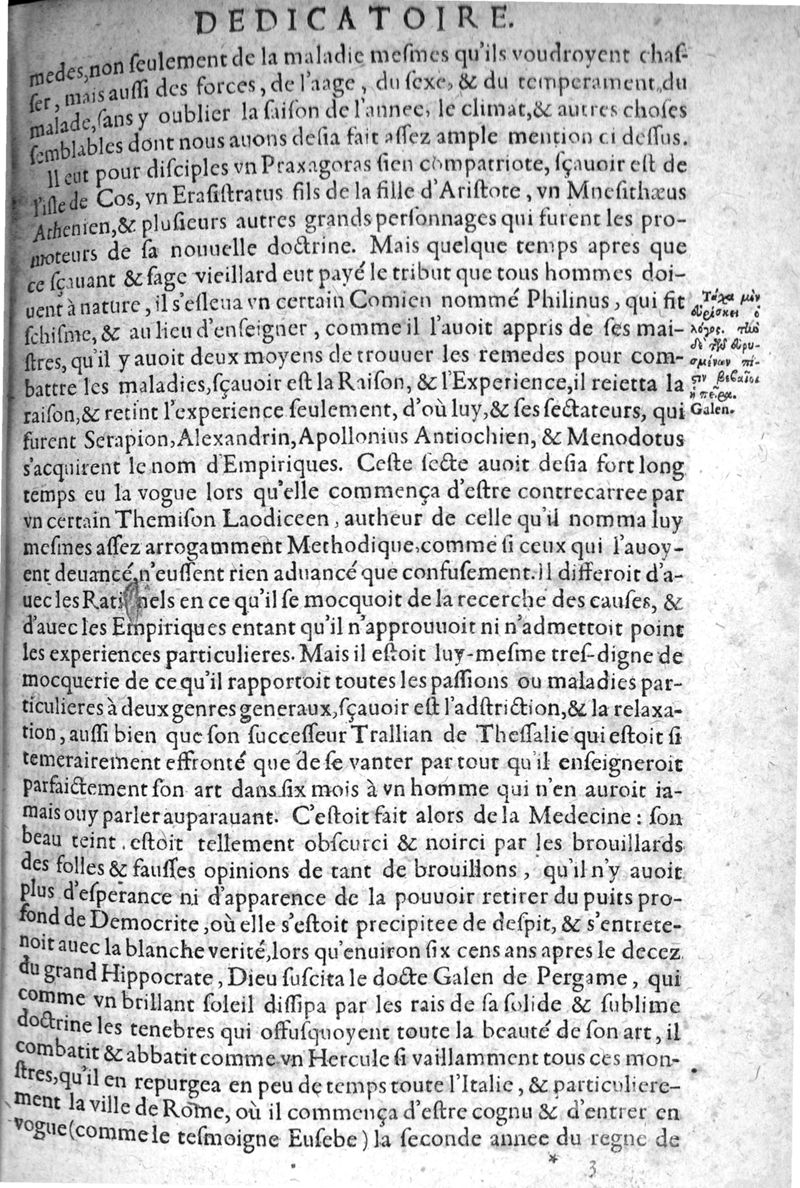 DEDICATOIRE.
medes, non ſeulement de la maladie meſmes qu'ils voudroyent chaſ-
ſer, mais auſſi des forces, de l'aage, du ſexe, & du temperament du
malade, ſans y oublier la ſaiſon de l'annee, le climat, & autres choſes
ſemblables dont nous auons deſia fait aſſez ample mention ci deſſus.
Il eut pour diſciples vn Praxagoras ſien compatriote, ſçauoir eſt de
l'iſle de Cos, vn Eraſiſtratus fils de la fille d'Ariſtote, vn Mneſithæus
Athenien, & pluſieurs autres grands perſonnages qui furent les pro-
moteurs de ſa nouuelle doctrine. Mais quelque temps apres que
ce ſçauant & ſage vieillard eut payé le tribut que tous hommes doi-
uent à nature, il s'eſleua vn certain Comien nommé Philinus, qui fit
ſchiſme, & au lieu d'enſeigner, comme il l'auoit appris de ſes mai-
ſtres, qu'il y auoit deux moyens de trouuer les remedes pour com-
battre les maladies, ſçauoir eſt la Raiſon, & l'Experience, il reietta la
raiſon, & retint l'experience ſeulement, d'où luy, & ſes ſectateurs, qui
furent Serapion, Alexandrin, Apollonius Antiochien, & Menodotus
s'acquirent le nom d'Empiriques. Ceſte ſecte auoit deſia fort long
temps eu la vogue lors qu'elle commença d'eſtre contrecarree par
vn certain Themiſon Laodiceen, autheur de celle qu'il nomma luy
meſmes aſſez arrogamment Methodique, comme ſi ceux qui l'auoy-
ent deuancé, n'euſſent rien aduancé que confuſement. Il differoit d'a-
uec les Rationels en ce qu'il ſe mocquoit de la recerche des cauſes, &
d'auec les Empiriques entant qu'il n'approuuoit ni n'admettoit point
les experiences particulieres. Mais il eſtoit luy-meſme treſ-digne de
mocquerie de ce qu'il rapportoit toutes les paſſions ou maladies par-
ticulieres à deux genres generaux, ſçauoir eſt l'adſtriction, & la relaxa-
tion, auſſi bien que ſon ſucceſſeur Trallian de Theſſalie qui eſtoit ſi
temerairement effronté que de ſe vanter par tout qu'il enſeigneroit
parfaictement ſon art dans ſix mois à vn homme qui n'en auroit ia-
mais ouy parler auparauant. C'eſtoit fait alors de la Medecine: ſon
beau teint eſtoit tellement obſcurci & noirci par les brouillards
des folles & fauſſes opinions de tant de brouillons, qu'il n'y auoit
plus d'eſperance ni d'apparence de la pouuoir retirer du puits pro-
fond de Democrite, où elle s'eſtoit precipitee de deſpit, & s'entrete-
noit auec la blanche verité, lors qu'enuiron ſix cens ans apres le decez
du grand Hippocrate, Dieu ſuſcita le docte Galen de Pergame, qui
comme vn brillant ſoleil diſſipa par les rais de ſa ſolide & ſublime
doctrine les tenebres qui offuſquoyent toute la beauté de ſon art, il
combatit & abbatit comme vn Hercule ſi vaillamment tous ces mon-
ſtres, qu'il en repurgea en peu de temps toute l'Italie, & particuliere-
ment la ville de Rome, où il commença d'eſtre cognu & d'entrer en
vogue (comme le teſmoigne Euſebe) la ſeconde annee du regne de
* 3
Τάχα μὲν
εὑρίσκει ὁ
λόγος.
ἡ πεῖρα.
Galen.